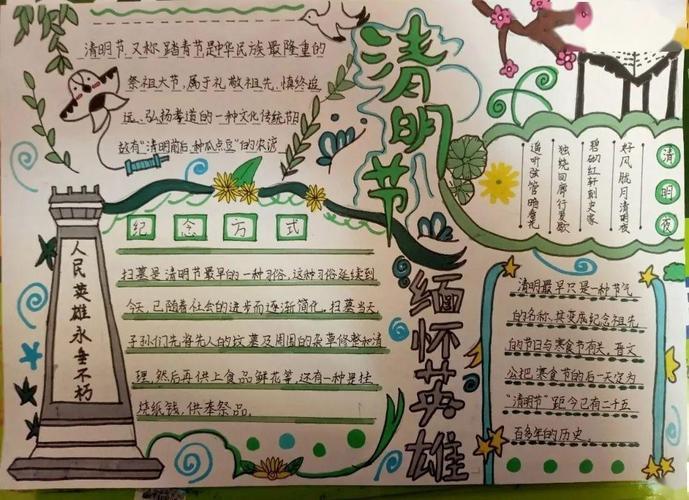 清明节,又称踏青节,是中华民族最隆重的
祭祖大节,属于礼敬祖先、慎终追
远、弘扬孝道的一种文化传统节日
故有“清明前后,种瓜点豆”的农谚
清明节
缅怀英雄
清明夜
好风胧月清明夜
碧砌红轩刺史家
独绕回廊行复歇
遥听弦管暗看花
人民英雄永垂不朽
纪念方式
扫墓是清明节最早的一种习俗,这种习俗延续到
今天,已随着社会的进步而逐渐简化,扫墓当天
子孙们先将先人的坟墓及周围的杂草修整和清
理,然后再供上食品鲜花等,还有一种是挂
烧纸钱,供奉祭品。
清明最早只是一种节气
的名称,其变成纪念祖先
的节日与寒食节有关,晋文
公把寒食节的后一天定为
“清明节”距今已有二十五
百多年的历史。